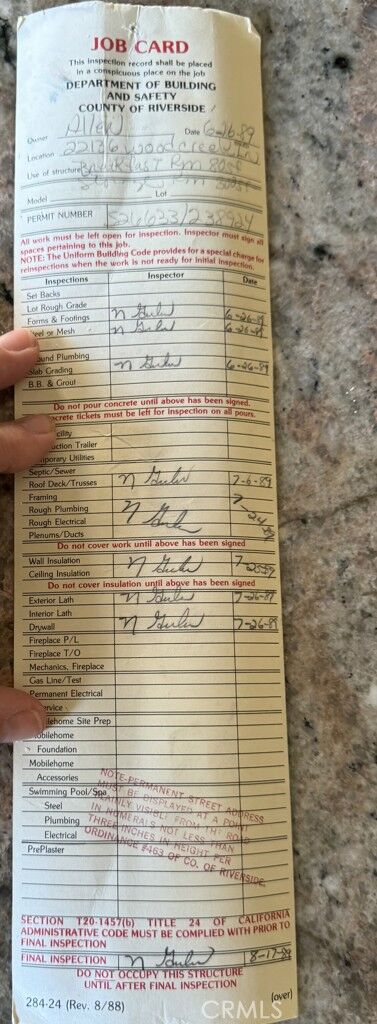 JOB CARD
This inspection record shall be placed
in a conspicuous place on the job
DEPARTMENT OF BUILDING
AND SAFETY
COUNTY OF RIVERSIDE
Owner Allen Date 6-26-89
Location 22136 Woodcreek Ln
Use of structure Breakfast Rm 80sf
Model Lot
PERMIT NUMBER 526633/238984
All work must be left open for inspection. Inspector must sign all
spaces pertaining to this job.
NOTE: The Uniform Building Code provides for a special charge for
reinspections when the work is not ready for initial inspection.
Inspections Inspector Date
Set Backs
Lot Rough Grade
Forms & Footings 6-26-89
or Mesh 6-26-89
ound Plumbing
Slab Grading 6-26-89
B.B. & Grout
Do not pour concrete until above has been signed.
crete tickets must be left for inspection on all pours.
cility
uction Trailer
porary Utilities
Septic/Sewer
Roof Deck/Trusses 7-6-89
Framing
Rough Plumbing 7-24
Rough Electrical 89
Plenums/Ducts
Do not cover work until above has been signed
Wall Insulation 7-25-89
Ceiling Insulation
Do not cover insulation until above has been signed
Exterior Lath 7-26-89
Interior Lath
Drywall 7-26-89
Fireplace P/L
Fireplace T/O
Mechanics, Fireplace
Gas Line/Test
Permanent Electrical
Service
ilehome Site Prep
Mobilehome
Foundation
Mobilehome
Accessories
Swimming Pool/Spa
Steel
Plumbing
Electrical
PrePlaster
NOTE-PERMANENT STREET ADDRESS
MUST BE DISPLAYED AT A POINT
PLAINLY VISIBLE FROM THE ROAD
IN NUMERALS NOT LESS THAN
THREE INCHES IN HEIGHT PER
ORDINANCE #463 OF CO. OF RIVERSIDE.
SECTION T20-1457(b) TITLE 24 OF CALIFORNIA
ADMINISTRATIVE CODE MUST BE COMPLIED WITH PRIOR TO
FINAL INSPECTION
FINAL INSPECTION 8-17-89
DO NOT OCCUPY THIS STRUCTURE
UNTIL AFTER FINAL INSPECTION
284-24 (Rev. 8/88) (over)
CRMLS